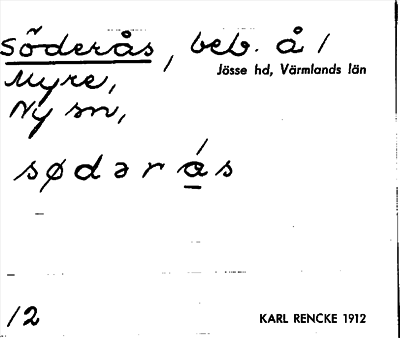 Söderås, beb. å /
Jösse hd, Värmlands län
Myre,
Ny sn,
sødərás
12
KARL RENCKE 1912